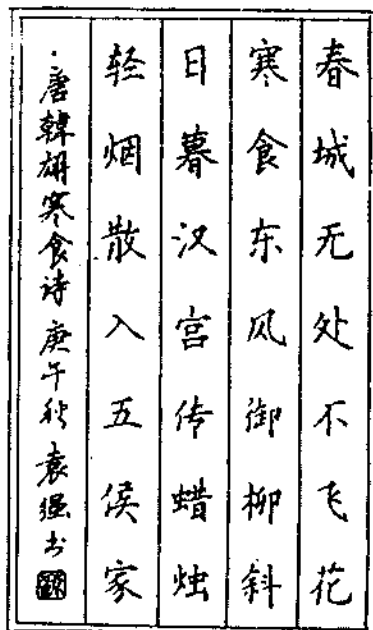 春城无处不飞花
寒食东风御柳斜
日暮汉宫传蜡烛
轻烟散入五侯家
·唐韓翃寒食诗 庚午秋 袁强书